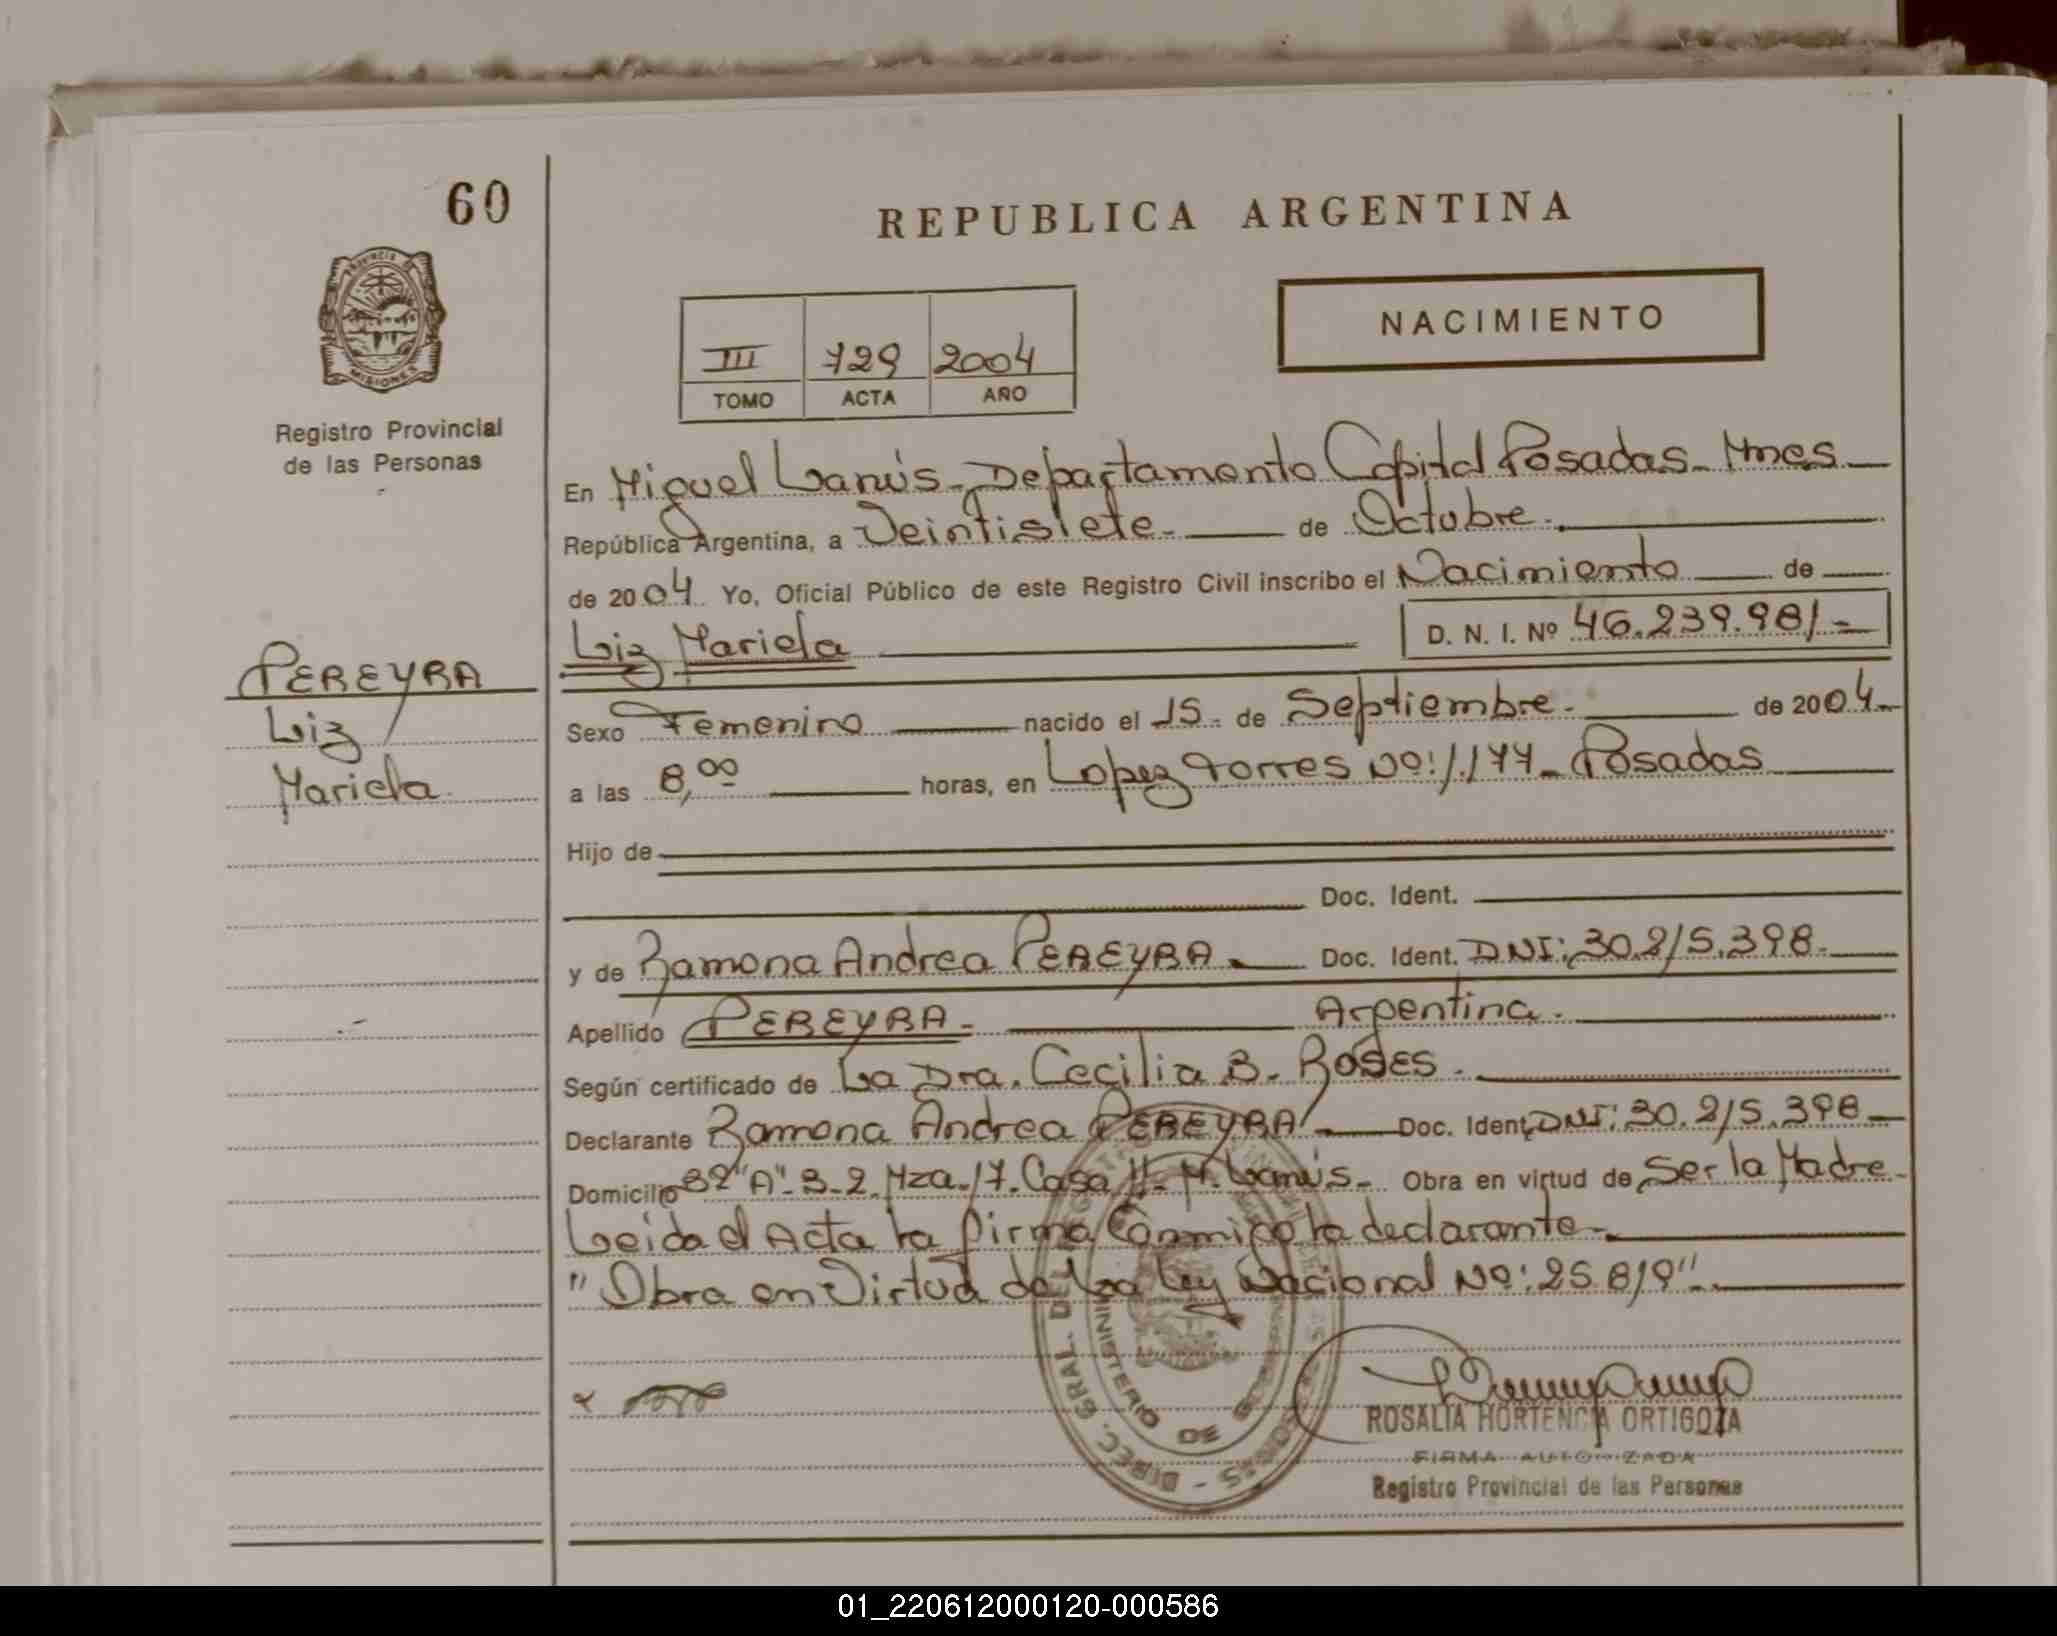 60
REPUBLICA ARGENTINA
PROVINCIA DE
MISIONES
Registro Provincial
de las Personas
III 729 2004
TOMO ACTA AÑO
NACIMIENTO
En Miguel Lanús - Departamento Capital Posadas - Mnes
República Argentina, a Veintisiete - de Octubre.
de 2004 Yo, Oficial Público de este Registro Civil inscribo el Nacimiento de
Liz Mariela
D. N. I. Nº 46.239.981-
PEREYRA
Liz
Mariela
Sexo Femenino nacido el 15 - de Septiembre - de 2004
a las 8,00 horas, en Lopez Torres Nº: 1.177 - Posadas
Hijo de
Doc. Ident.
y de Ramona Andrea PEREYRA - Doc. Ident. DNI: 30.215.398 -
Apellido PEREYRA - Argentina -
Según certificado de La Dra. Cecilia B. ROSES -
Declarante Ramona Andrea PEREYRA Doc. Ident. DNI: 30.215.398
Domicilio 32 "A" - 3-2. Mza. 17. Casa 11 - M. Lanús - Obra en virtud de Ser la Madre -
Leida el Acta la firma Conmigo la declarante -
"Obra en Virtud de La Ley Nacional Nº: 25.819" -
ROSALIA HORTENCIA ORTIGOZA
FIRMA AUTORIZADA
Registro Provincial de las Personas
DIREC. GRAL. DEL
MINISTERIO DE
01_220612000120-000586